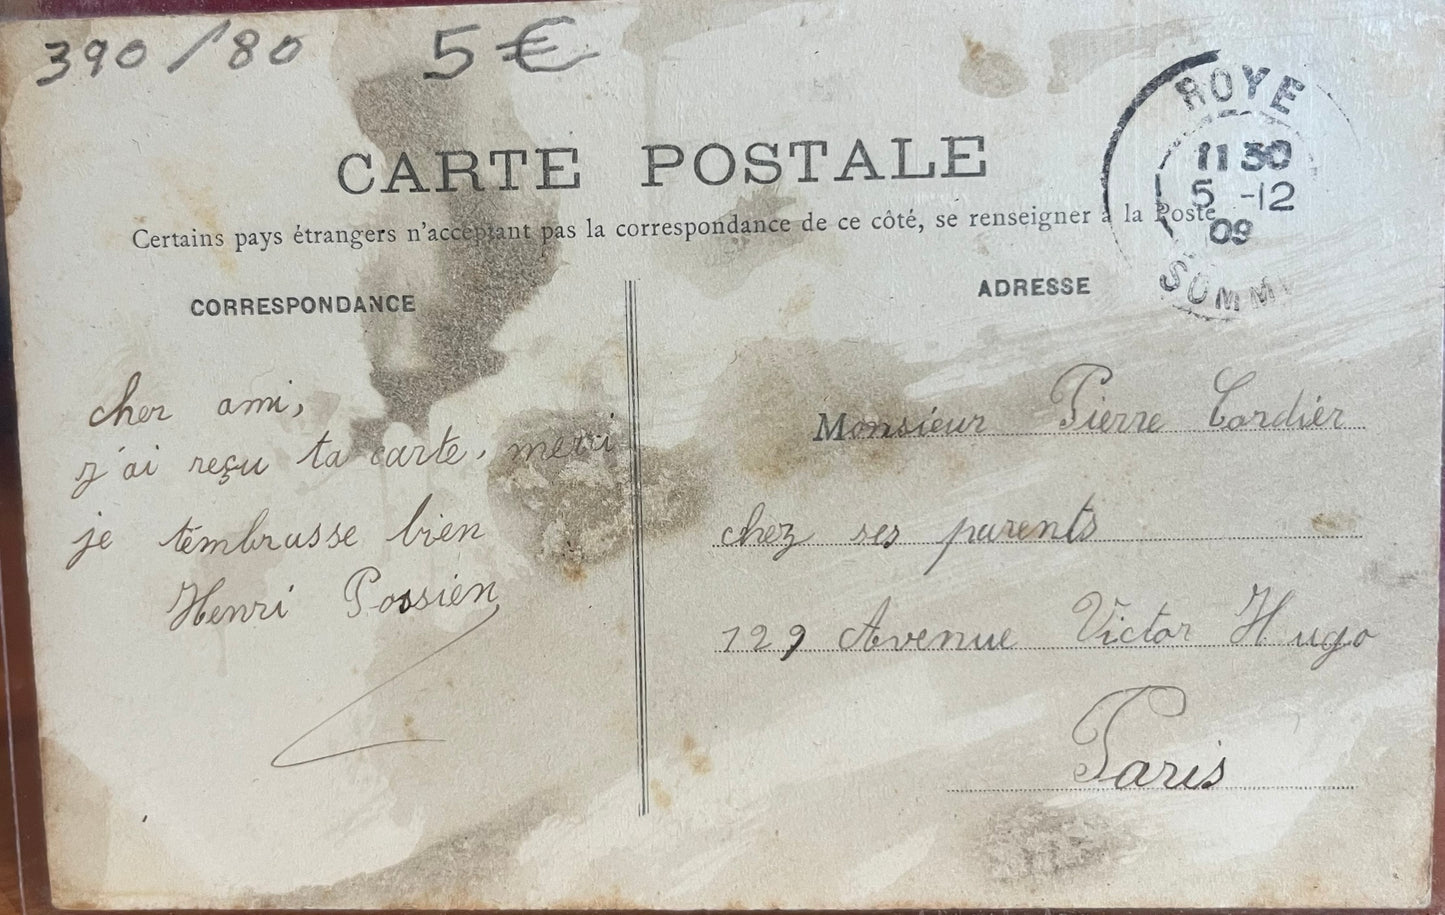 390/80 5€
CARTE POSTALE
Certains pays étrangers n'acceptant pas la correspondance de ce côté, se renseigner à la Poste
ROYE
11 30
5 -12
09
SOMM
CORRESPONDANCE
cher ami,
j'ai reçu ta carte, merci
je t'embrasse bien
Henri Possien
ADRESSE
Monsieur Pierre Cordier
chez ses parents
129 Avenue Victor Hugo
Paris